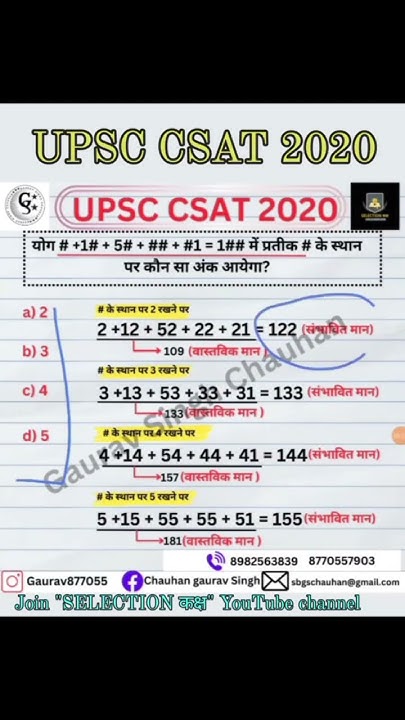 UPSC CSAT 2020
UPSC CSAT 2020
SELECTION कक्ष
योग # +1# + 5# + ## + #1 = 1## में प्रतीक # के स्थान
पर कौन सा अंक आयेगा?
a) 2
# के स्थान पर 2 रखने पर
2 +12 + 52 + 22 + 21 = 122 (संभावित मान)
109 (वास्तविक मान)
b) 3
# के स्थान पर 3 रखने पर
3 +13 + 53 + 33 + 31 = 133 (संभावित मान)
133(वास्तविक मान )
c) 4
# के स्थान पर 4 रखने पर
4 +14 + 54 + 44 + 41 = 144(संभावित मान)
157(वास्तविक मान )
d) 5
# के स्थान पर 5 रखने पर
5 +15 + 55 + 55 + 51 = 155(संभावित मान)
181(वास्तविक मान )
Gaurav Singh Chauhan
8982563839 8770557903
Gaurav877055 Chauhan gaurav Singh sbgschauhan@gmail.com
Join "SELECTION कक्ष" YouTube channel